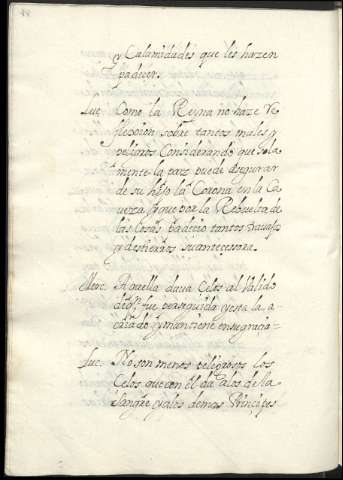 y Calamidades que les hazen
padecer.
Luc. Como la Reyna no haze re
flexion sobre tantos males y
peligros Considerando que sola
mente la paz puede asigurar
de su hijo la Corona en la Ca
veza, y que por la Rebuelta de
las Cosas padecio tantos travajos
y destierros su antecessora.
Merc. Aquella dava Celos al Valido
de qn. fue perseguida, y esta la a-
caricia do y mantiene en su gracia-
Luc. No son menos peligrosos los
Celos que con el da a los de la
Sangre y a los demas Principes